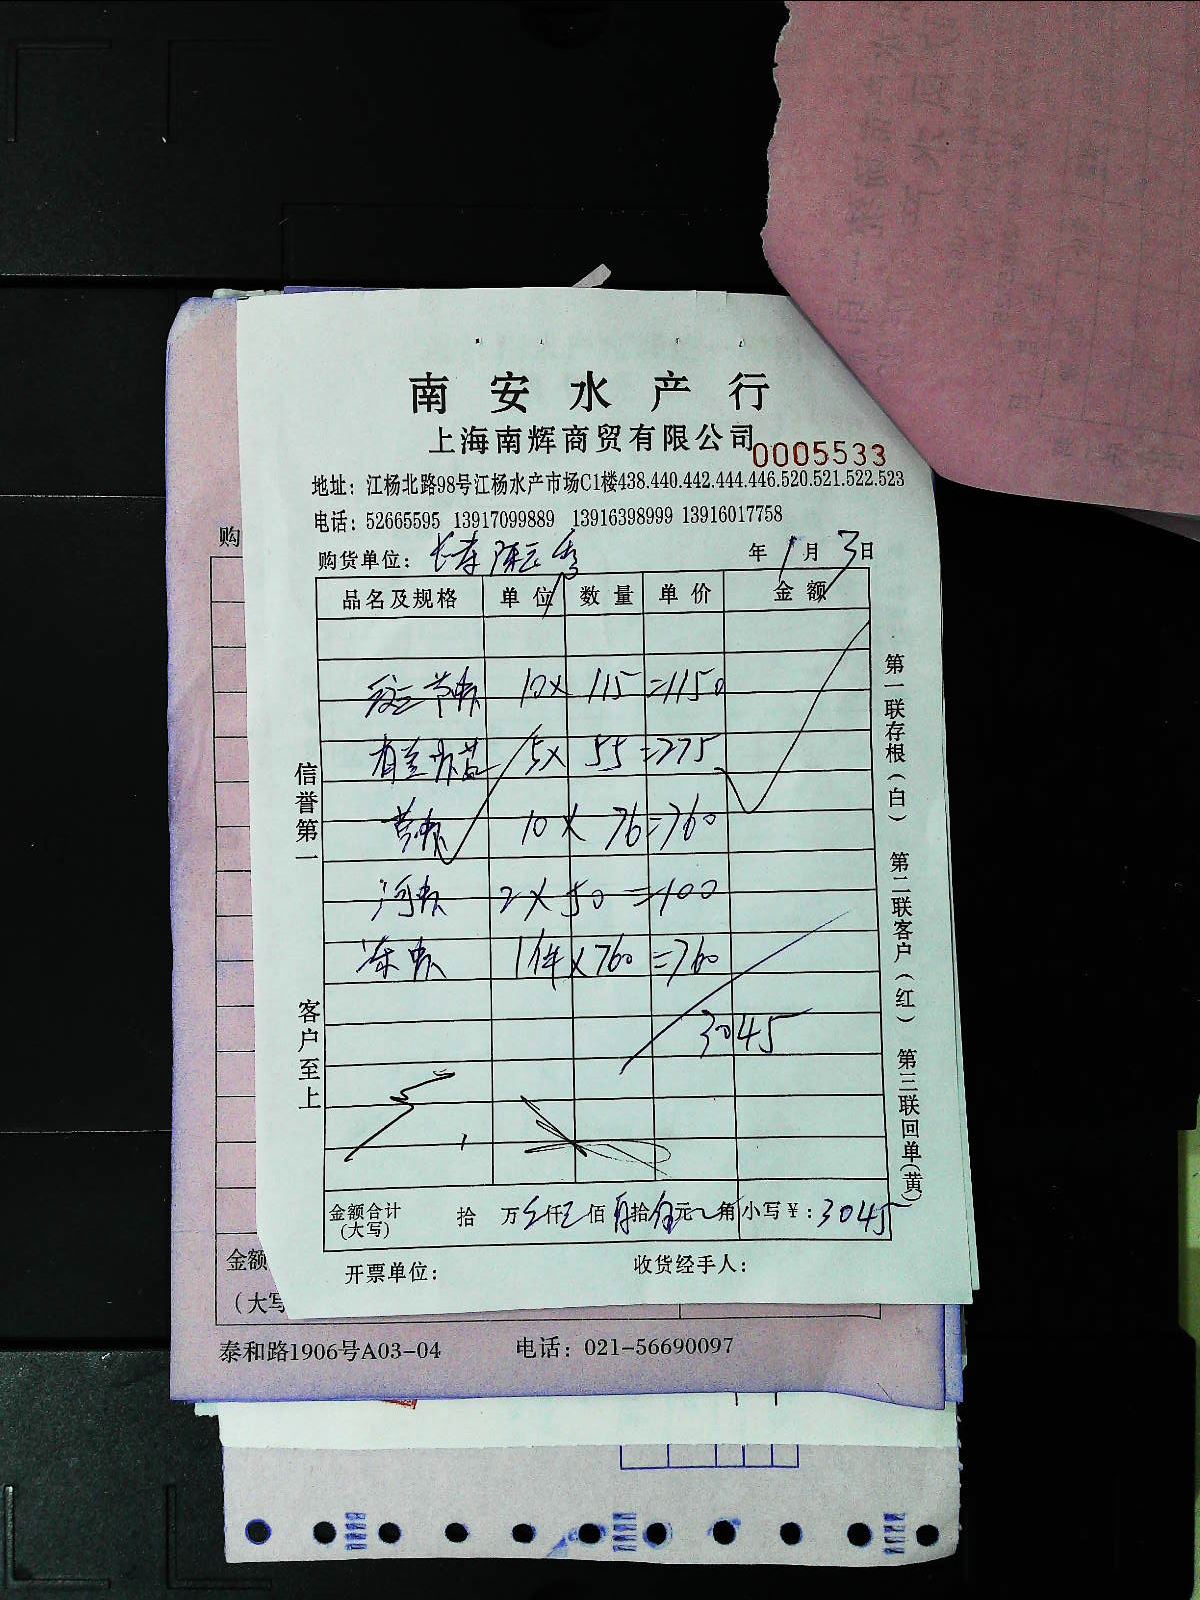 南安水产行
上海南辉商贸有限公司
0005533
地址：江杨北路98号江杨水产市场C1楼438.440.442.444.446.520.521.522.523
电话：52665595 13917099889 13916398999 13916017758
购货单位： 年1月3日
品名及规格 单位 数量 单价 金额
节虾 10× 115=1150
5× 55=275
10× 76=760
河虾 2×50=100
冻虾 1件×760=760
3045
金额合计(大写) 拾 万 仟 佰 拾 元 角 小写¥：3045
开票单位： 收货经手人：
信誉第一 客户至上
第一联存根(白) 第二联客户(红) 第三联回单(黄)
购
金额
（大写
泰和路1906号A03-04 电话：021-56690097